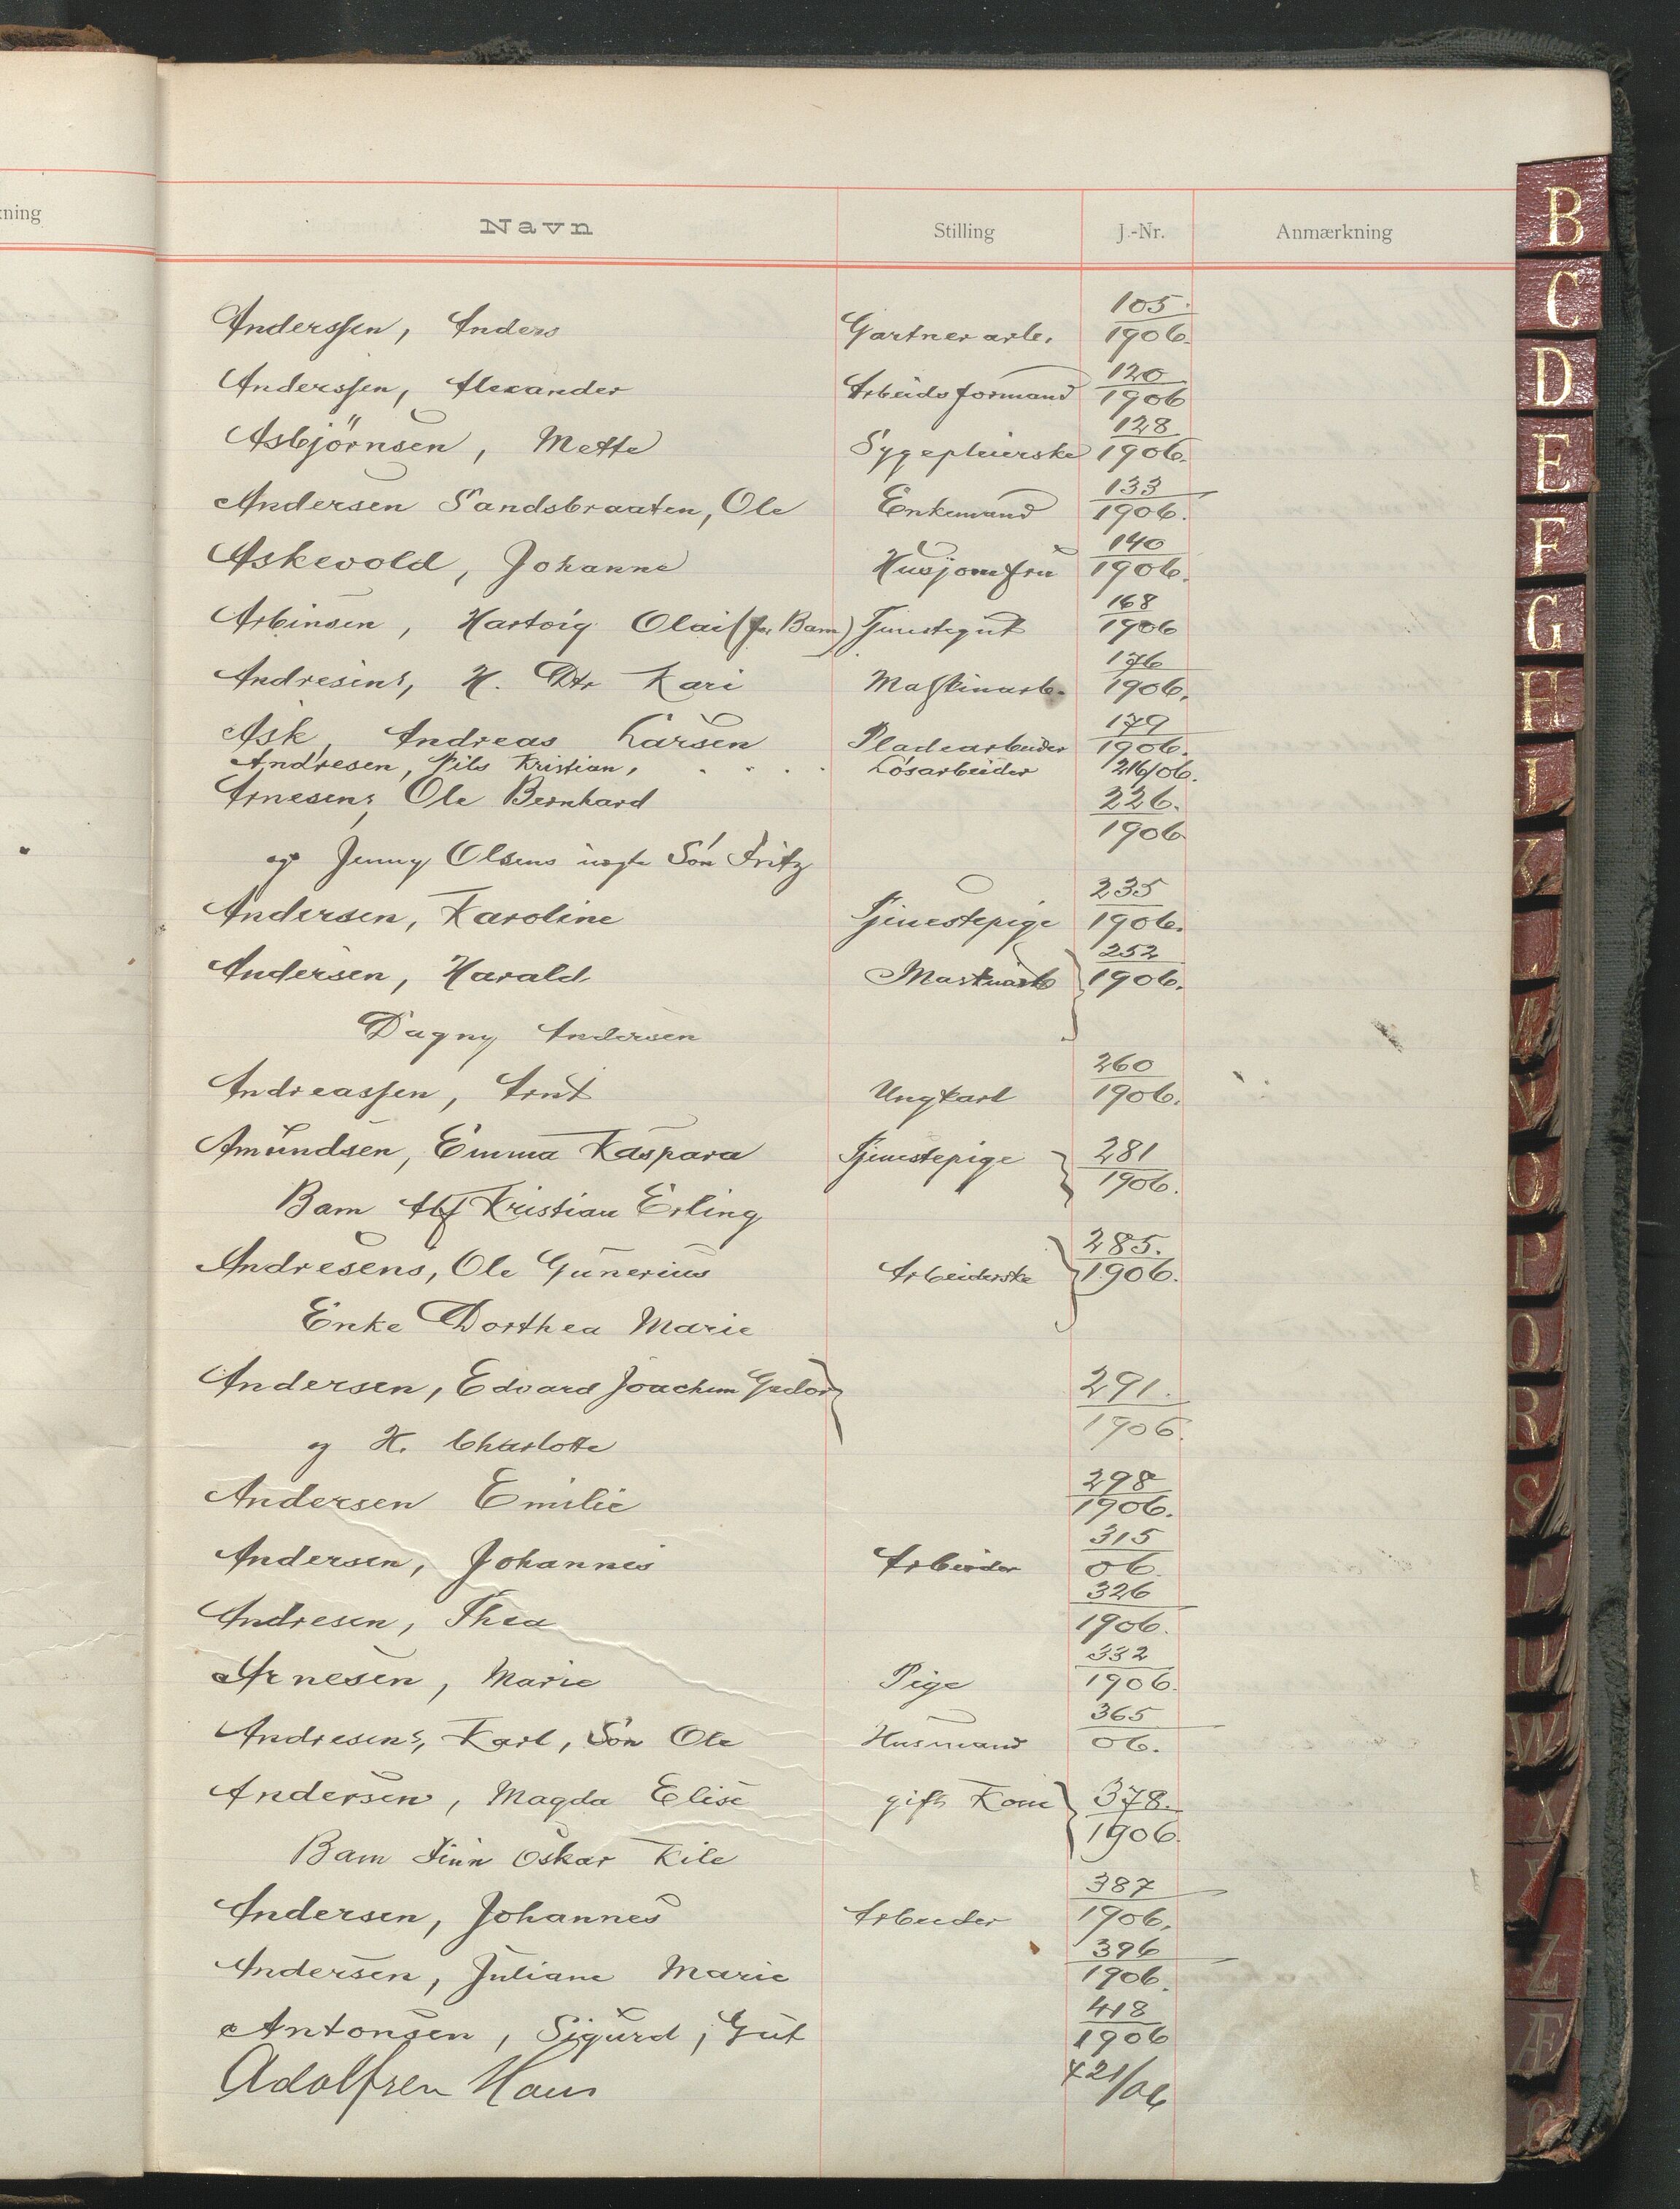 ning
Navn Stilling J.-Nr. Anmærkning
Anderssen, Anders Gartnerarb. 105/1906.
Anderssen, Alexander Arbeidsformand 120/1906
Asbjörnsen, Mette Sygepleierske 128/1906.
Andersen Sandsbraaten, Ole Enkemand 133/1906.
Askevold, Johanne Husjomfru 140/1906.
Arbinsen, Hartvig Olai (for Barn) Tjenestegut 168/1906
Andresens, H. Dtr Kari Maskinarb. 176/1906.
Ask, Andreas Larsen Pladearbeider 179/1906.
Andresen, Nils Kristian, . . . . Løsarbeider 216/06.
Arnesens, Ole Bernhard 226./1906
og Jenny Olsens uegte Sön Fritz
Andersen, Karoline Tjenestepige 235/1906.
Andersen, Harald Maskinarb } 252/1906.
Dagny Andersen
Andreassen, Arnt Ungkarl 260/1906.
Amundsen, Emma Kaspara Tjenestepige } 281/1906.
Barn Alf Kristian Erling
Andresens, Ole Gunerius Arbeiderske } 285./1906.
Enke Dorthea Marie
Andersen, Edvard Joachim } 291./1906.
og H. Charlotte
Andersen Emilie 298/1906.
Andersen, Johannes Arbeider 315/06
Andresen, Thea 326/1906.
Arnesen, Marie Pige 332/1906.
Andresens, Karl, Sön Ole Husmand 365/06.
Andersen, Magda Elise gift Kone } 378./1906.
Barn Finn Oskar Kile
Andersen, Johannes Arbeider 387/1906.
Andersen, Juliane Marie 396/1906.
Antonsen, Sigurd, Gut 418/1906
Adolfsen Hans 421/06
B
C
D
E
F
G
H
J
K
L
M
N
O
P
Q
R
S
T
U
W
X
Z
Æ